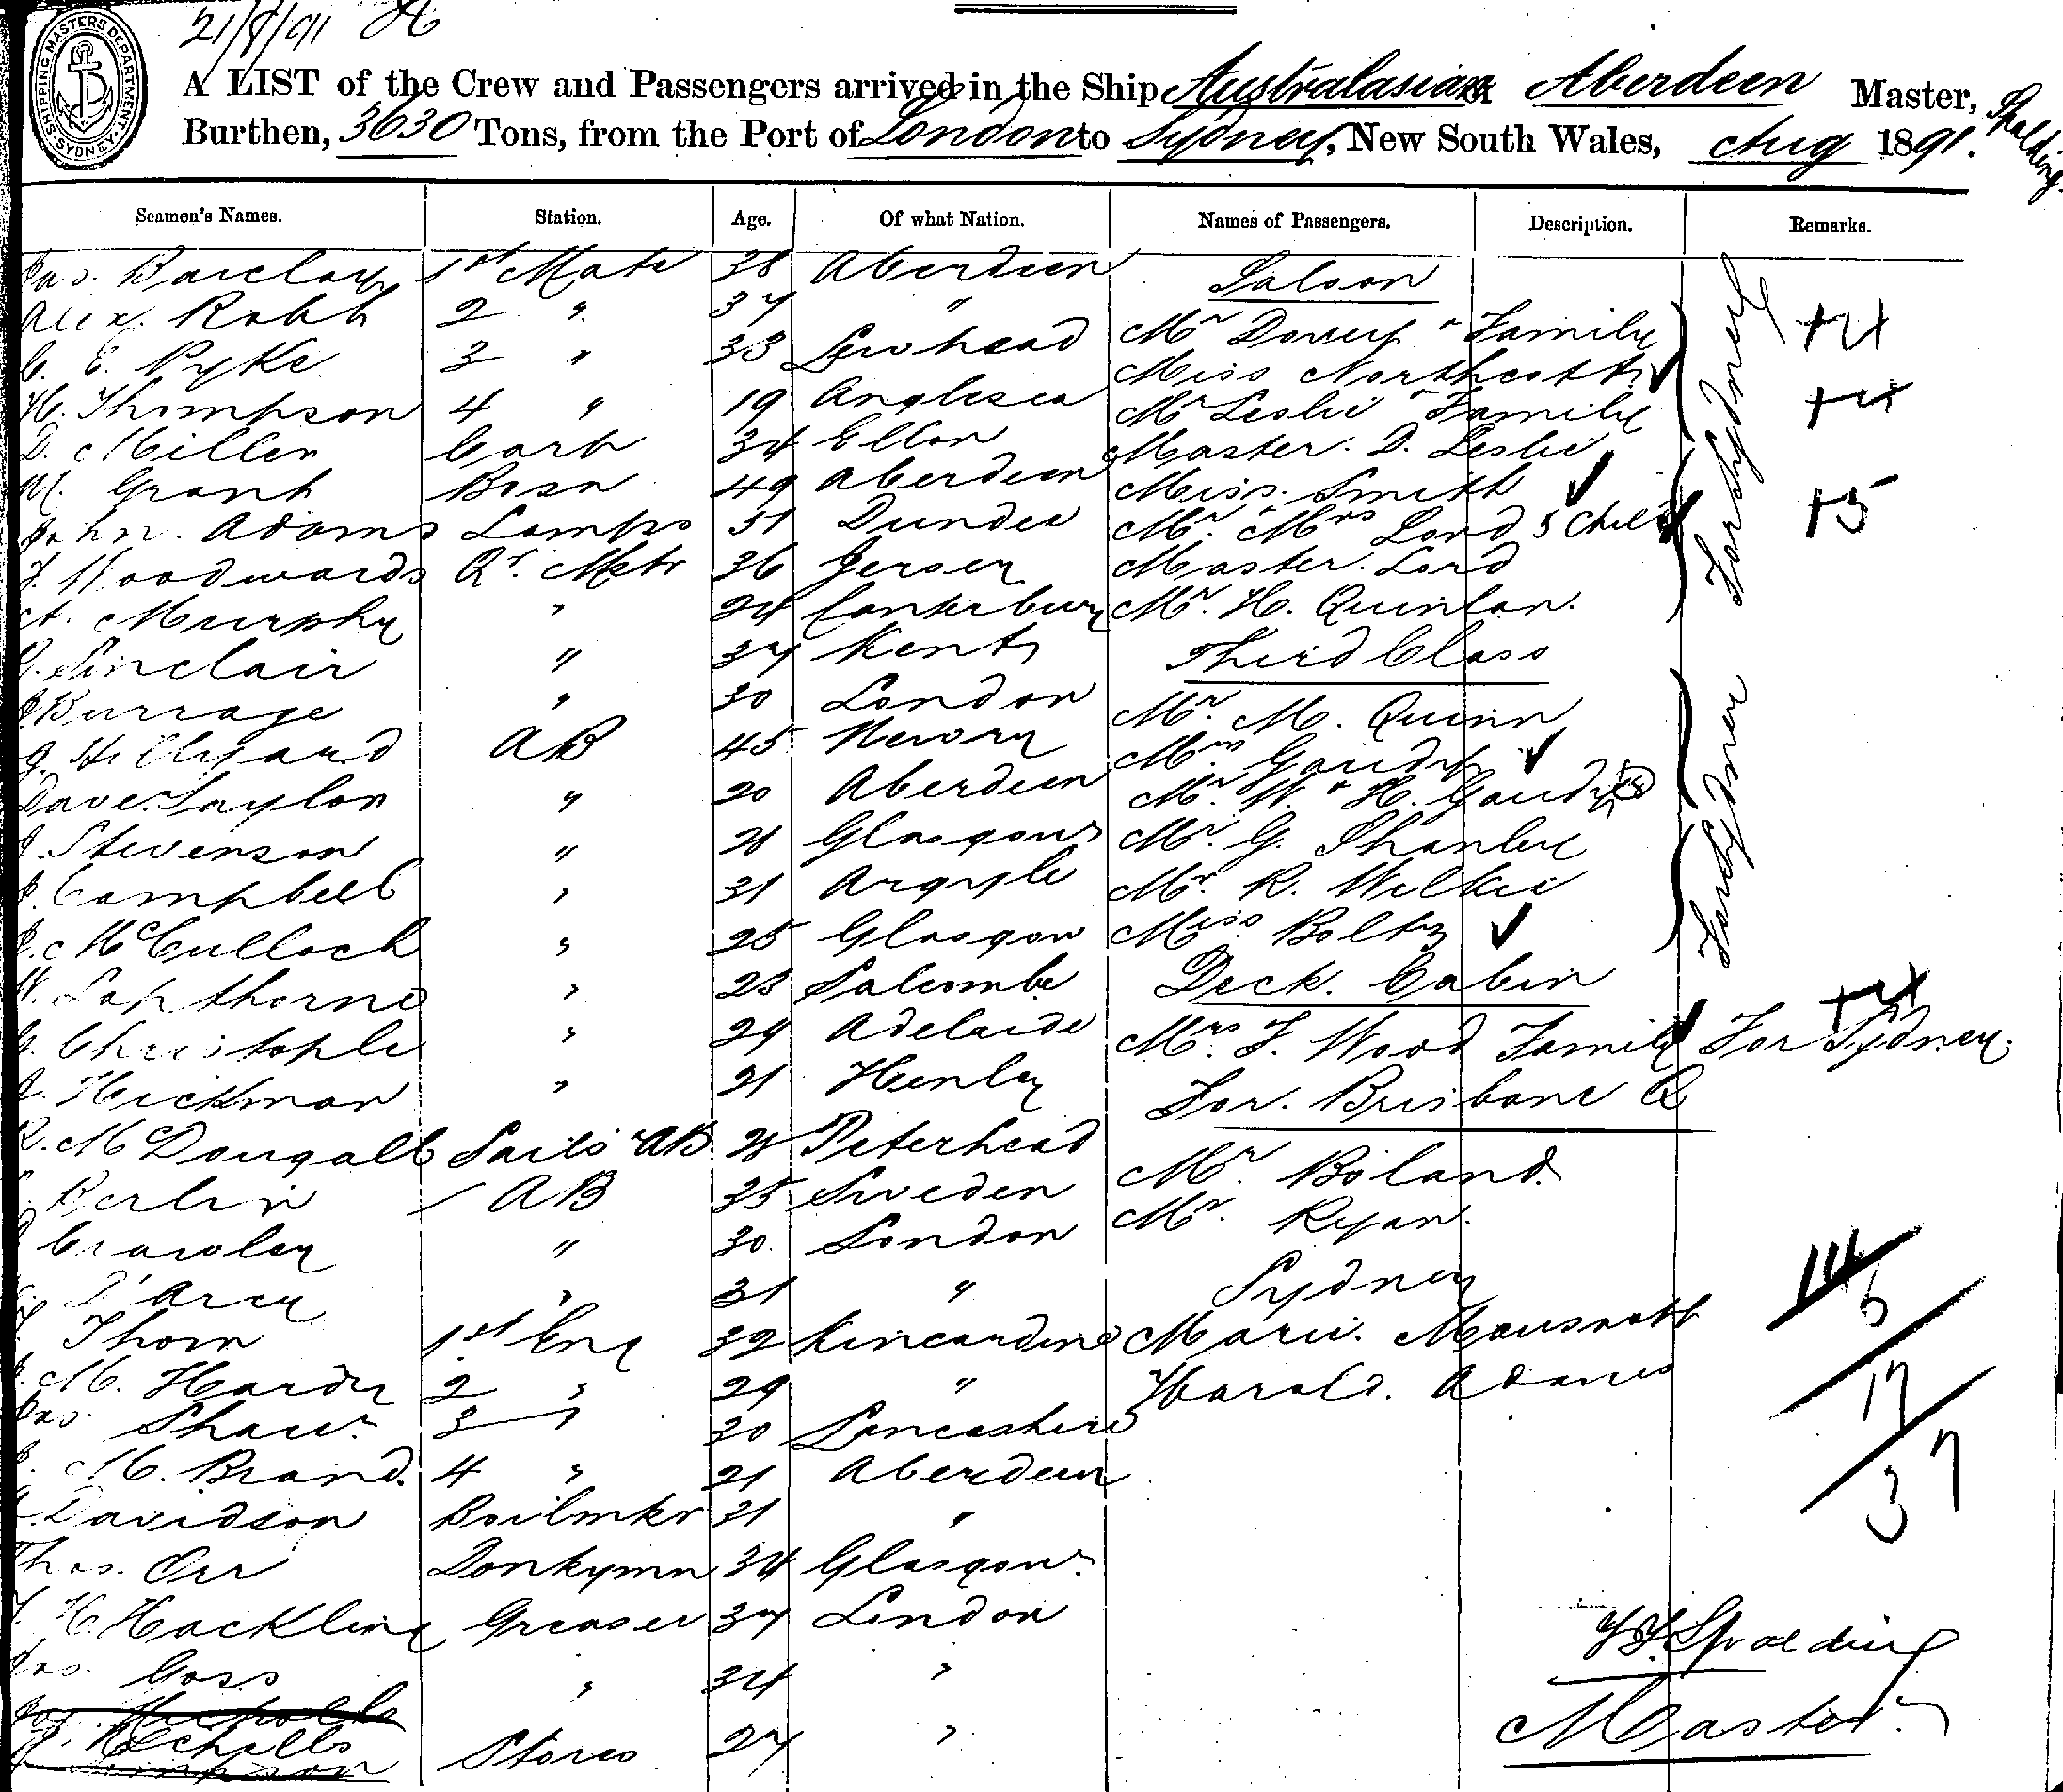 21/8/91
SHIPPING MASTERS DEPARTMENT SYDNEY
A LIST of the Crew and Passengers arrived in the Ship Australasian of Aberdeen Master, Spalding
Burthen, 3630 Tons, from the Port of London to Sydney, New South Wales, Aug 1891.
Seamen's Names. Station. Age. Of what Nation. Names of Passengers. Description. Remarks.
Jas. Barclay 1st Mate 38 Aberdeen Saloon
Alex. Robb 2 " 37 " Mr Dovey & Family +4
C. E. Pyke 3 " 33 Miss Northcott
H. Thompson 4 " 19 Anglesea Mr Leslie & Family +4
D. Miller Carp 34 Ellon Master. D. Leslie
M. Grant Bosn 49 Aberdeen Miss. Smith
John. Adams Lamps 51 Dundee Mr. & Mrs Lord 5 Chil +5
J. Woodwards Qr. Mstr 36 Jersey Master. Lord
A. Murphy " 24 Canterbury Mr. H. Quinlan. For Sydney
Sinclair " 37 Kent Third Class
J Burrage " 30 London Mr. M. Quinn
G. Hillyard AB 45 Newry Mrs Gaudy
Dave. Taylor " 20 Aberdeen Mr. W. & H. Gaudy
J. Stevenson " 28 Glasgow Mr. G. Shanley
J. Campbell " 31 Argyle Mr. R. Wilkie
J. McCulloch " 25 Glasgow Miss. Boltz For Sydney
W. Lapthorne " 23 Salcombe Deck. Cabin
Christople " 24 Adelaide Mrs. F. Wood Family For Sydney. +4
J. Hickman " 21 Henley For. Brisbane Q
R. McDougall Sails & AB 28 Peterhead Mr. Boland.
Berlin AB 35 Sweden Mr. Ryan.
Crawley " 30 London
D'Arcy " 31 " Sydney
Thom 1st Eng 32 Kincardine Marie. 6
J. M. Hardy 2 " 29 " Harold. Adams 17
Jas. Shaw 3 " 30 Lancashire
J. M. Brand. 4 " 21 Aberdeen 37
Davidson Boilmkr 31 "
Thos. Orr Donkymn 34 Glasgow
H. Hackling Greaser 37 London Spalding
Jas. Goss " 34 "
Jas. Nicholls Master
Nicholls Stores 27 "
Simpson